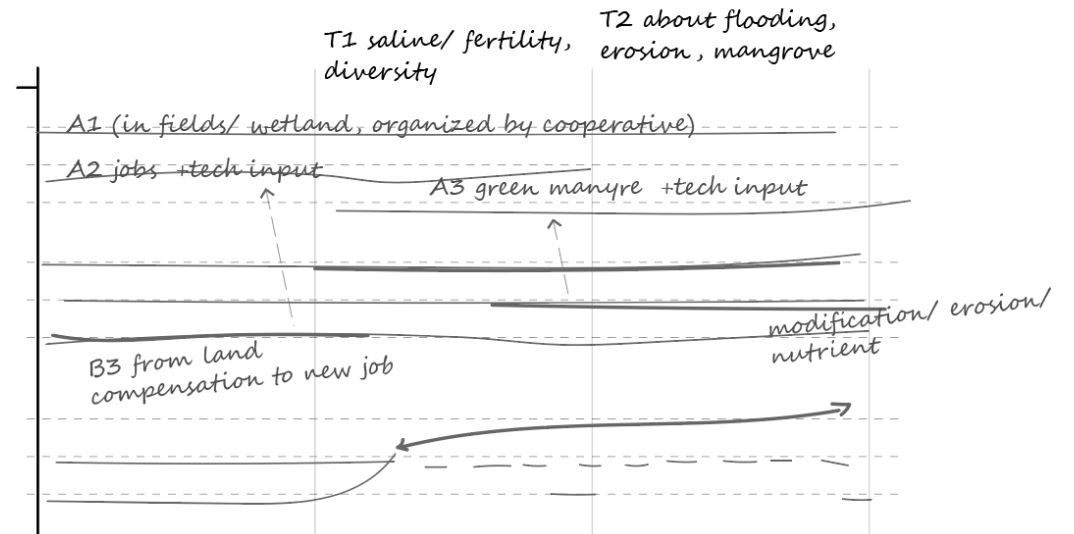 T1 saline/ fertility,
diversity
T2 about flooding,
erosion, mangrove
A1 (in fields/ wetland, organized by cooperative)
A2 jobs +tech input
A3 green manyre +tech input
modification/ erosion/
nutrient
B3 from land
compensation to new job